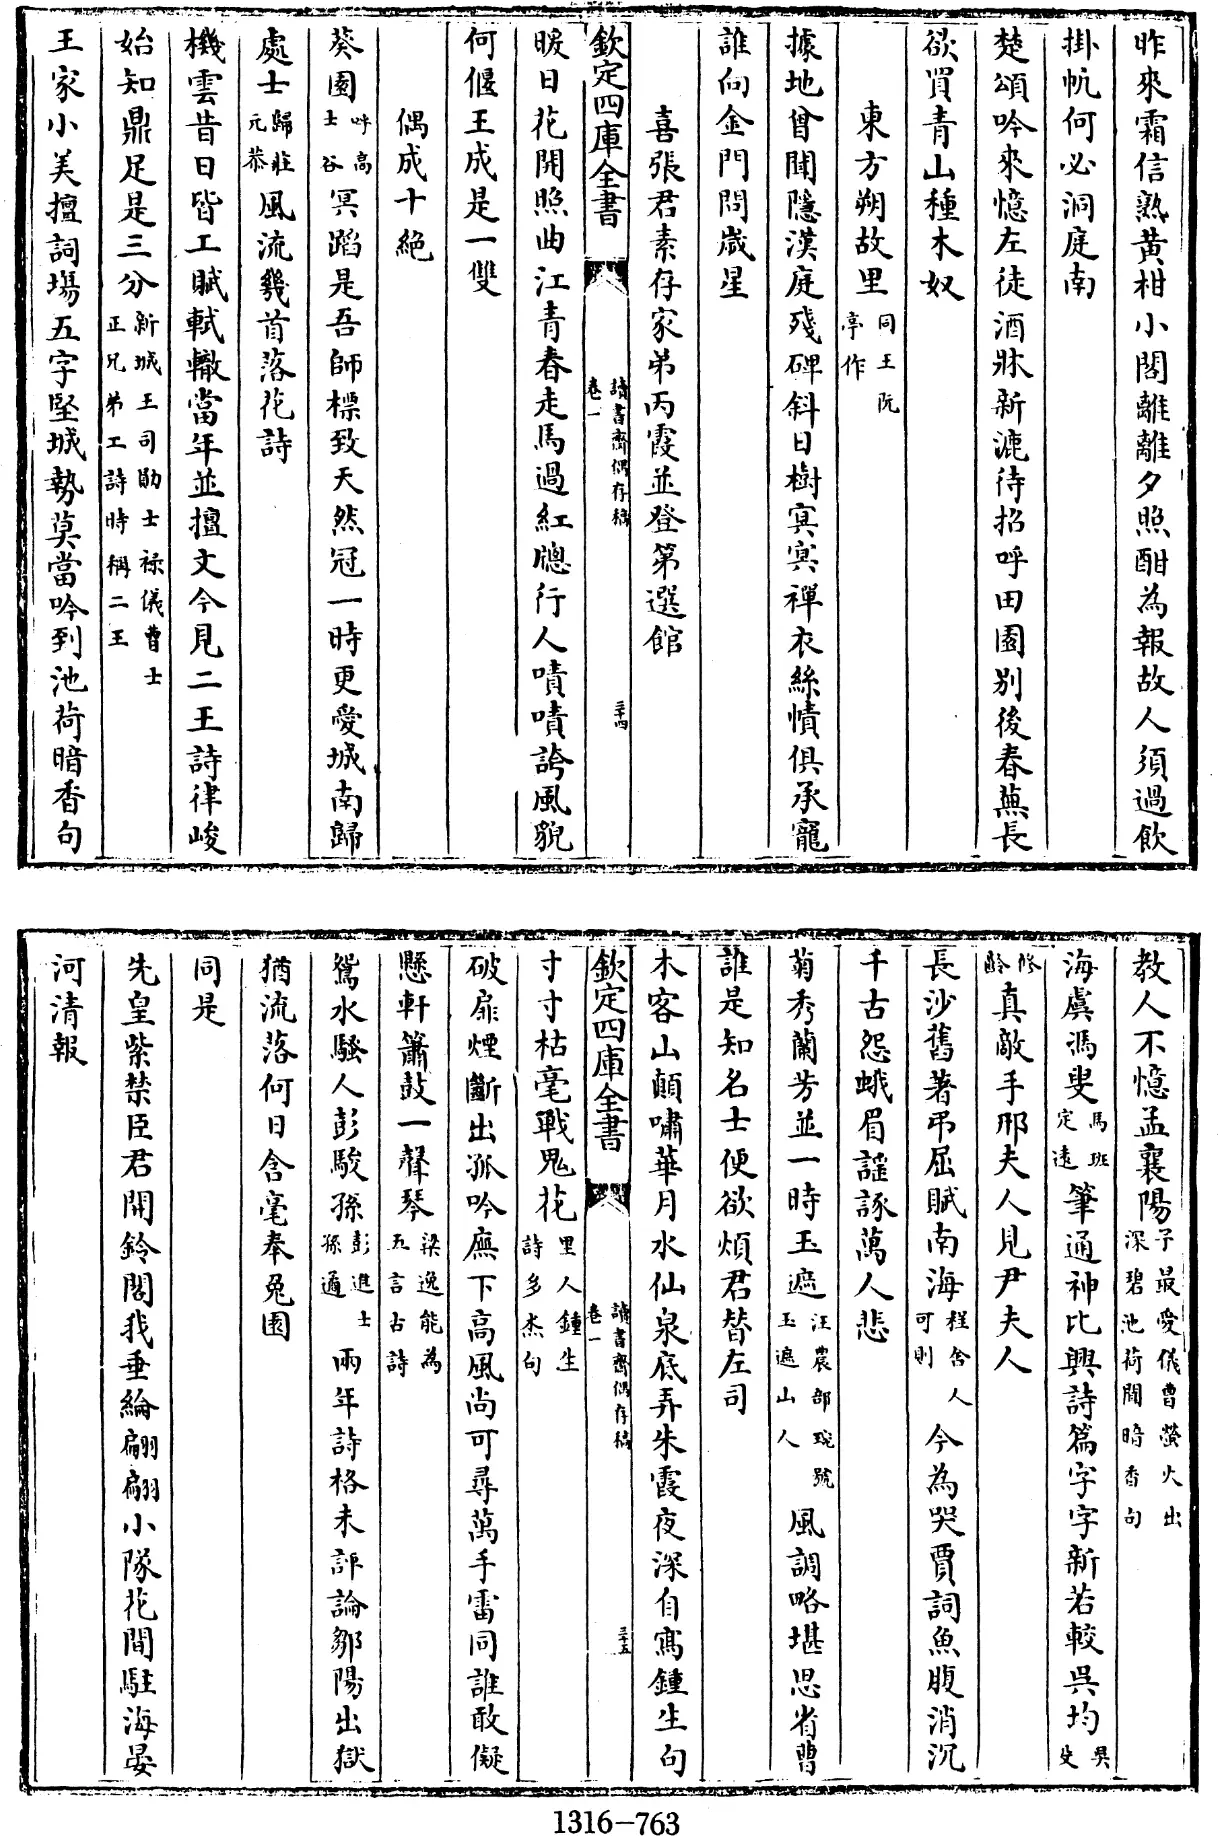 昨來霜信熟黃柑小閣離離夕照酣為報故人須過飲
掛帆何必洞庭南
楚頌吟來憶左徒酒牀新漉待招呼田園別後春蕪長
欲買青山種木奴
東方朔故里同王阮亭作
據地曾聞隱漢庭殘碑斜日樹冥冥禪衣絲幘俱承寵
誰向金門問歲星
喜張君素存家弟丙霞並登第選館
欽定四庫全書
讀書齋偶存稿
卷一
三十四
暖日花開照曲江青春走馬過紅牕行人嘖嘖誇風貌
何偃王成是一雙
偶成十絕
葵園呼高士谷冥蹈是吾師標致天然冠一時更愛城南歸
處士歸莊元恭風流幾首落花詩
機雲昔日皆工賦軾轍當年並擅文今見二王詩律峻
始知鼎足是三分新城王司勛士祿儀曹士正兄弟工詩時稱二王
王家小美擅詞場五字堅城勢莫當吟到池荷暗香句
教人不憶孟襄陽子最愛儀曹螢火出深碧池荷聞暗香句
海虞馮叟馬班定遠筆通神比興詩篇字字新若較吳均吳殳
修齡真敵手邢夫人見尹夫人
長沙舊著弔屈賦南海程舍人可則今為哭賈詞魚腹消沉
千古怨蛾眉謠諑萬人悲
菊秀蘭芳並一時玉遮汪農部琬號玉遮山人風調略堪思省曹
誰是知名士便欲煩君替左司
木客山顛嘯華月水仙泉底弄朱霞夜深自寫鍾生句
欽定四庫全書
讀書齋偶存稿
卷一
三十五
寸寸枯毫戰鬼花里人鍾生詩多杰句
破扉煙斷出孤吟廡下高風尚可尋萬手雷同誰敢儗
懸軒簫鼓一聲琴梁逸能為五言古詩
鴛水騷人彭駿孫彭進士孫遹兩年詩格未評論鄒陽出獄
猶流落何日含毫奉兔園
同是
先皇紫禁臣君開鈴閣我垂綸翩翩小隊花間駐海晏
河清報
1316-763